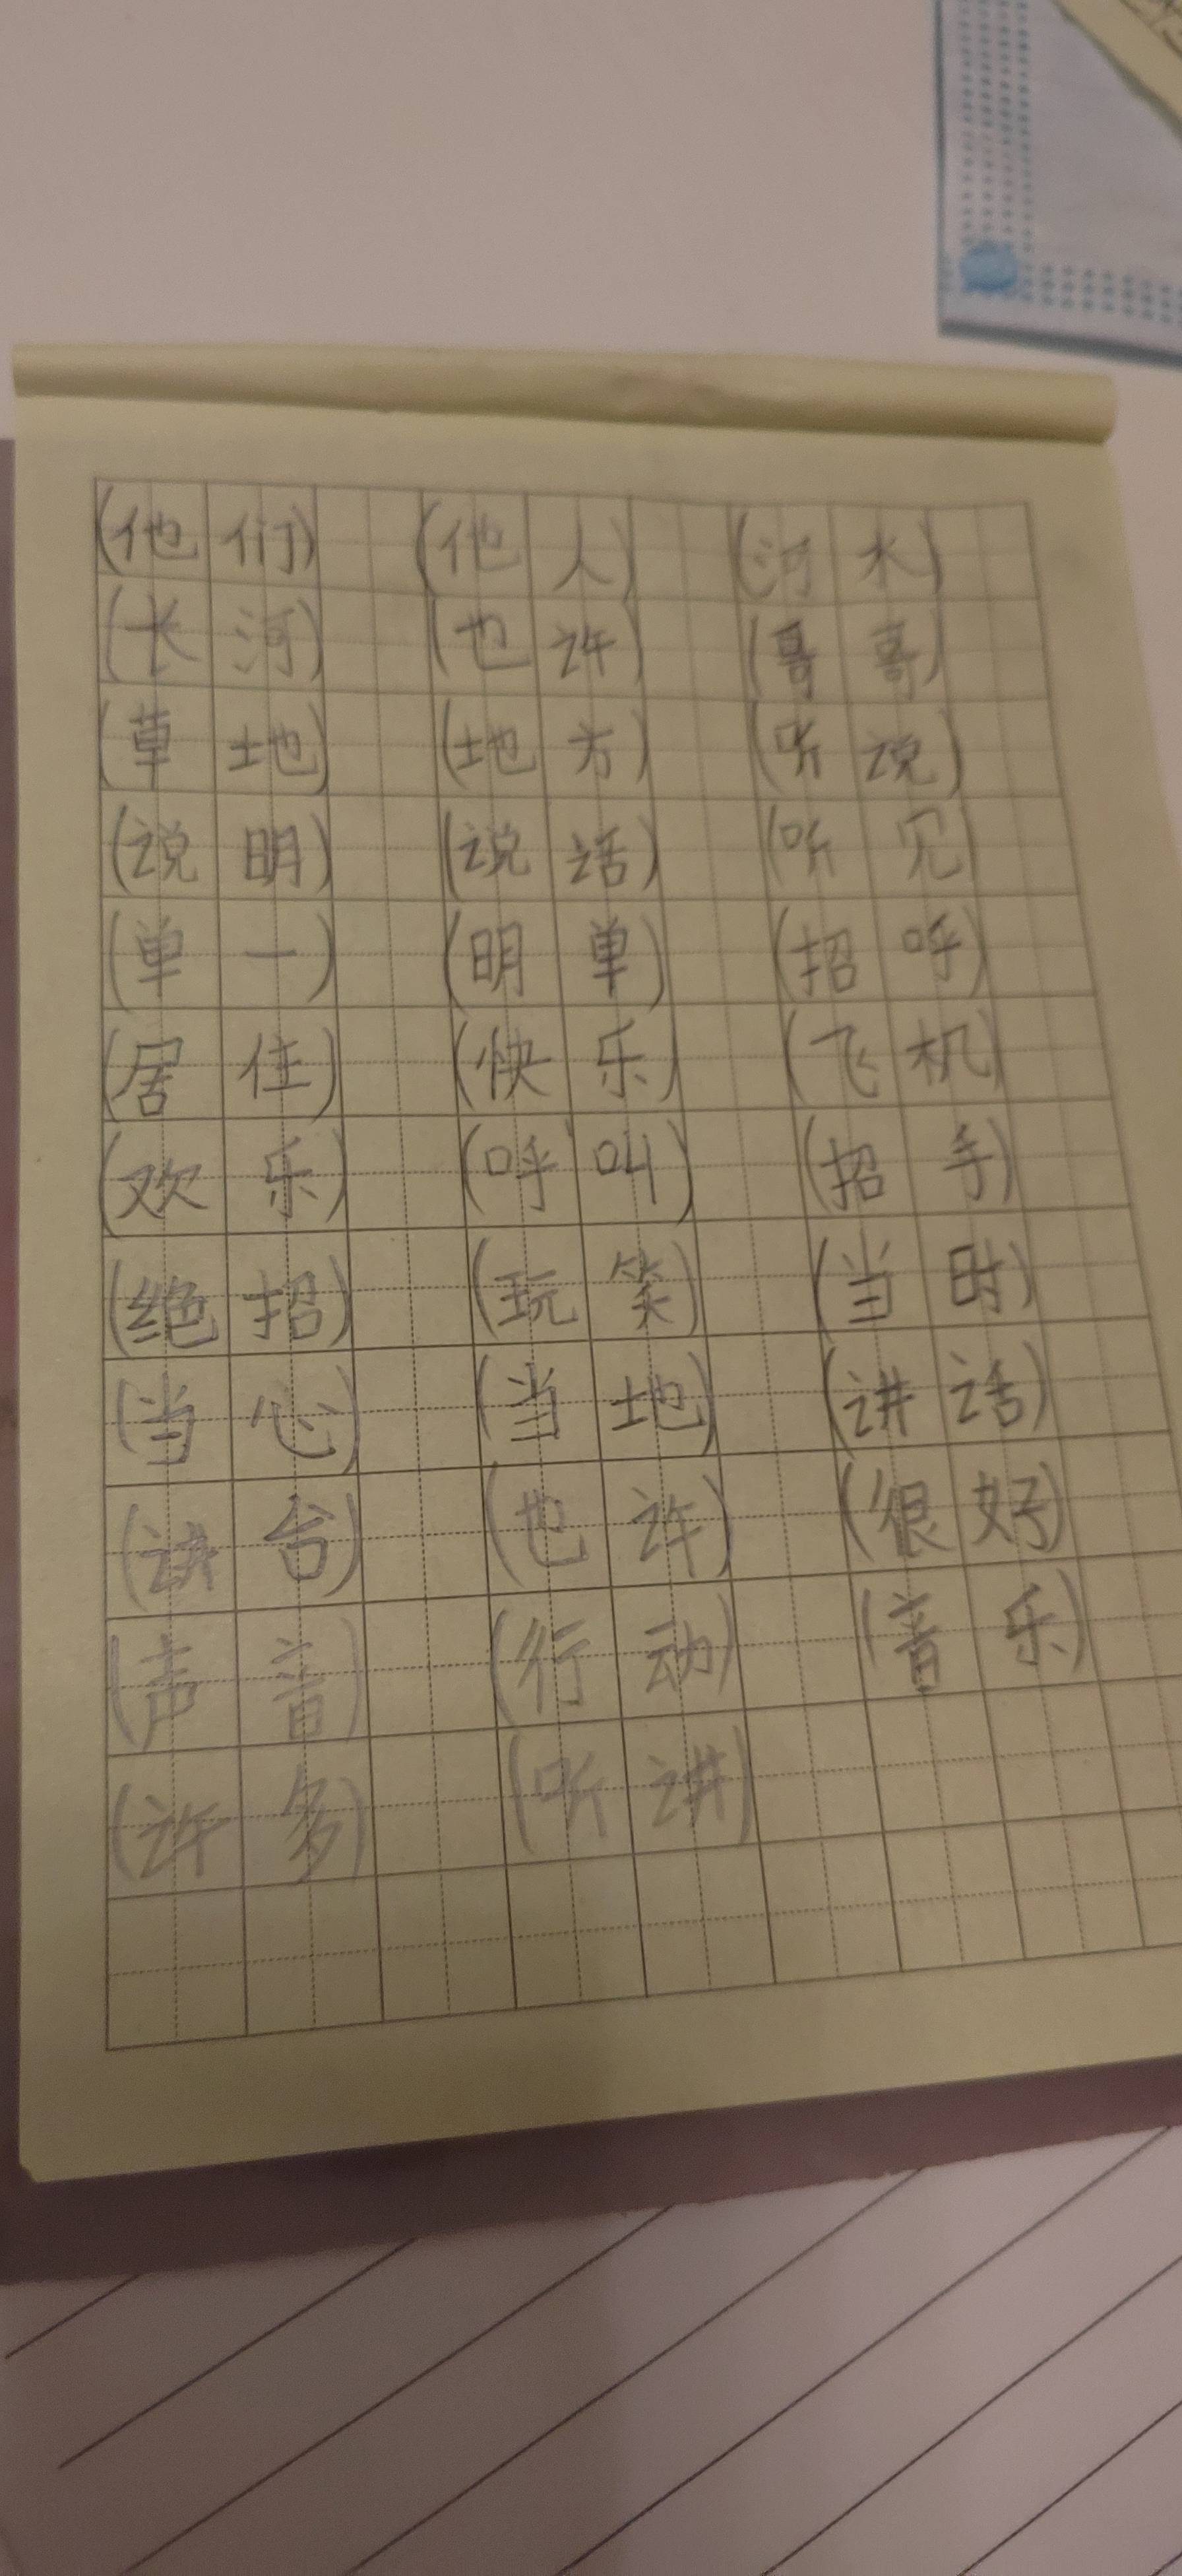 (他们) (他人) (河水)
(长河) (也许) (哥哥)
(草地) (地方) (听说)
(说明) (说话) (听见)
(单一) (明单) (招呼)
(居住) (快乐) (飞机)
(欢乐) (呼叫) (招手)
(绝招) (玩笑) (当时)
(当心) (当地) (讲话)
(讲台) (也许) (很好)
(声音) (行动) (音乐)
(许多) (听讲)